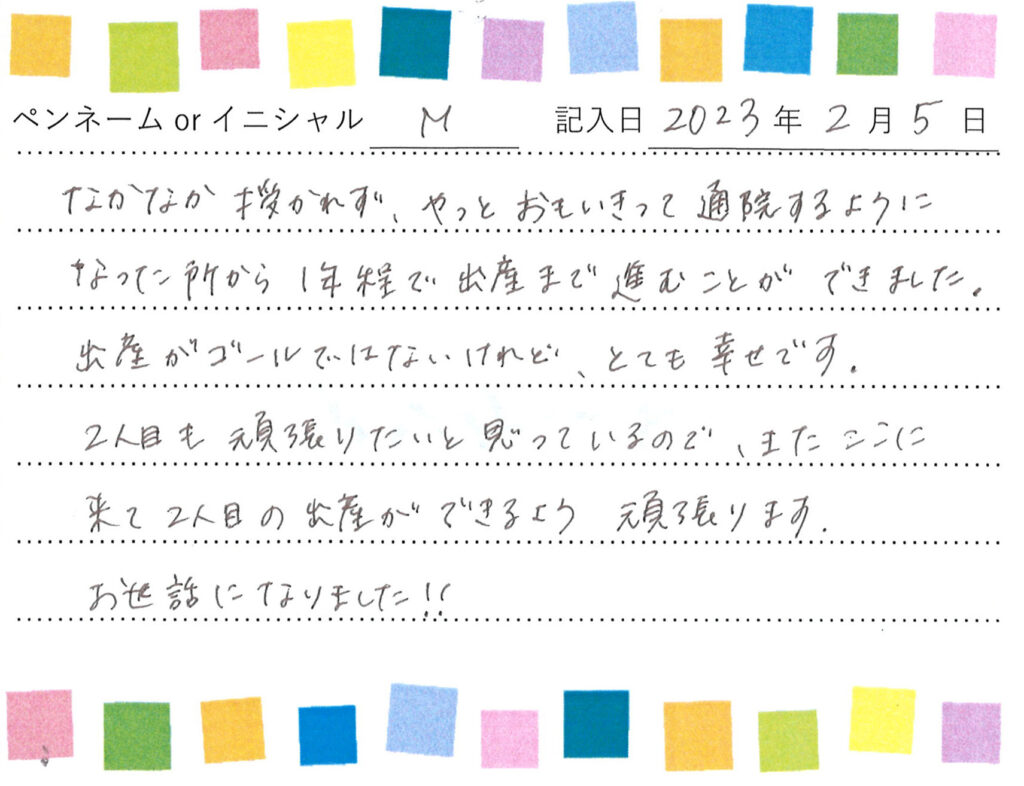 ペンネーム or イニシャル M 記入日 2023 年 2 月 5 日
なかなか授かれず、やっとおもいきって通院するように
なった所から1年程で出産まで進むことができました。
出産がゴールではないけれど、とても幸せです。
2人目も頑張りたいと思っているので、またここに
来て2人目の出産ができるよう 頑張ります。
お世話になりました!!